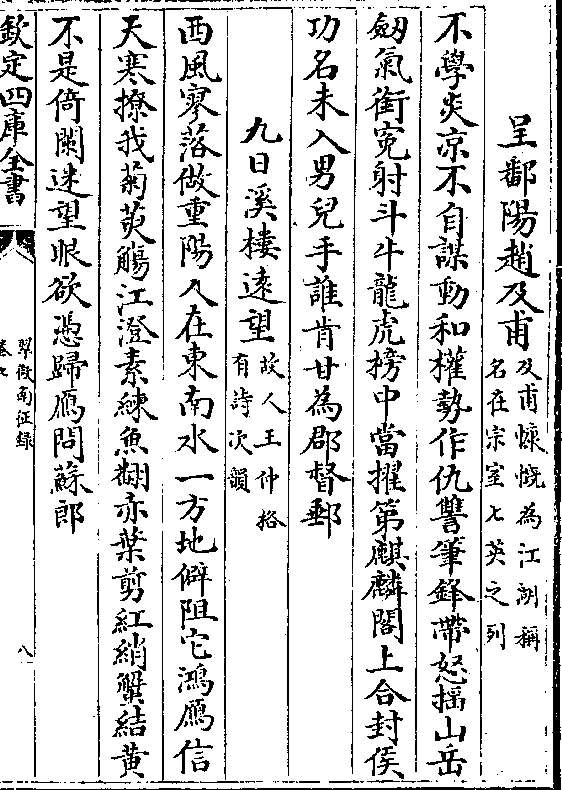 呈鄱陽趙及甫 及甫慷慨為江湖稱名在宗室七英之列
不學炎凉不自謀動和權勢作仇讐筆鋒帶怒揺山岳
劒氣銜寃射斗牛龍虎榜中當擢第麒麟閣上合封侯
功名未入男兒手誰肯甘為郡督郵
九日溪棲遠望 故人王仲格有詩次韻
西風寥落做重陽人在東南水一方地僻阻它鴻鴈信
天寒撩我菊萸觴江澄素練魚翻亦葉剪紅綃蟹結黄
不是倚闌迷望眼欲憑歸鴈問蘇郎
欽定四庫全書
翠微南征録
卷七
八